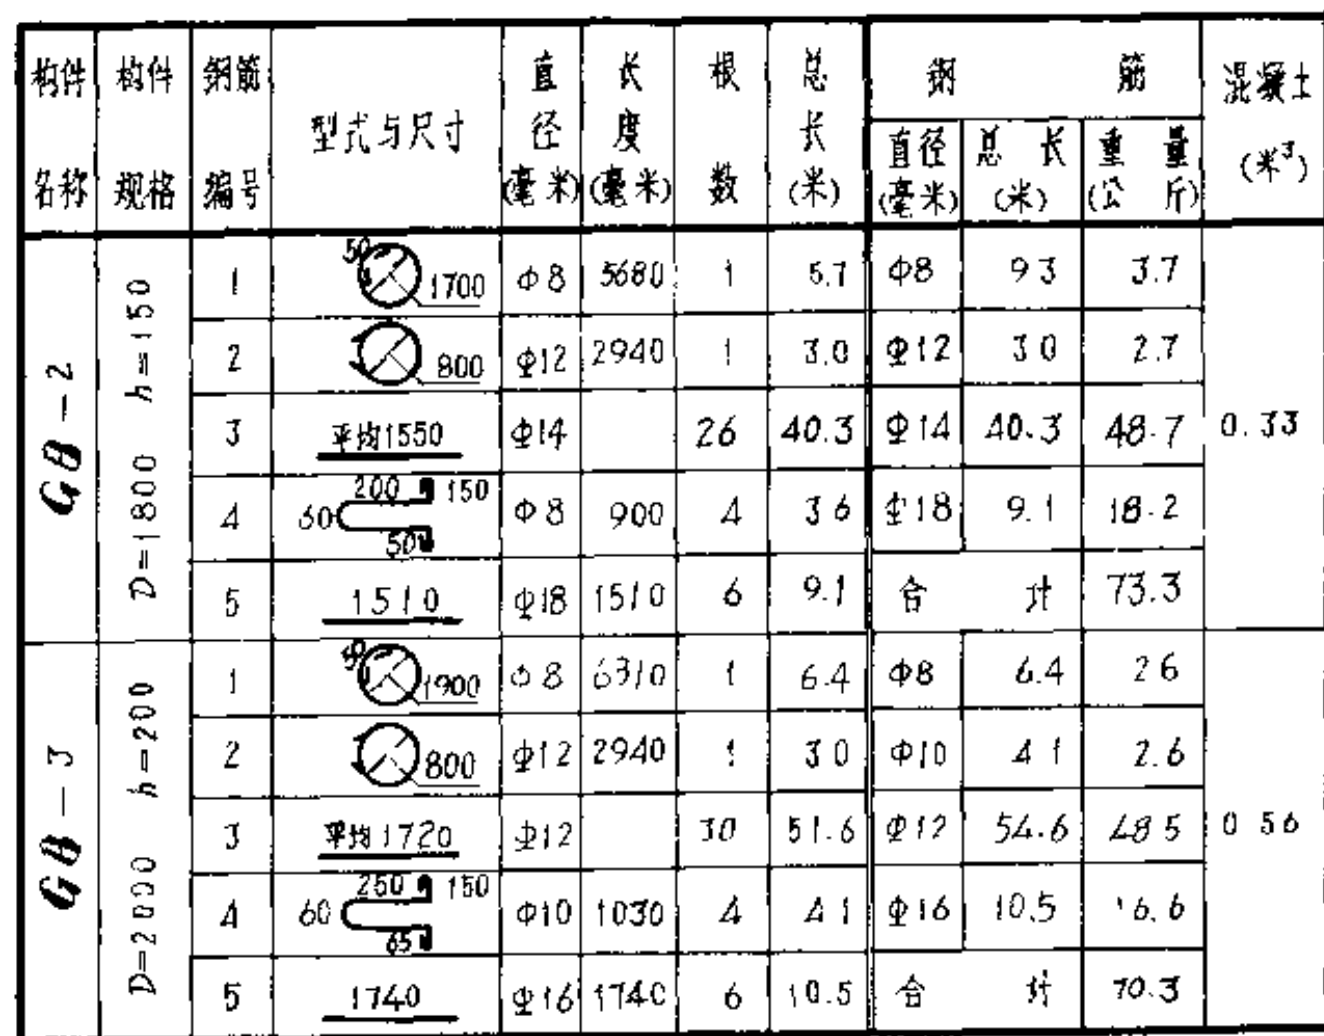 构件名称 构件规格 钢筋编号 型式与尺寸 直径(毫米) 长度(毫米) 根数 总长(米) 钢筋 混凝土(米³)
直径(毫米) 总长(米) 重量(公斤)
GB-2 D=1800 h=150
1 50 1700 Φ8 5680 1 5.7 Φ8 9 3 3.7
2 800 Φ12 2940 1 3.0 Φ12 3 0 2.7
3 平均1550 Φ14 26 40.3 Φ14 40.3 48.7 0.33
4 200 150 60 50 Φ8 900 4 3 6 Φ18 9.1 18.2
5 1510 Φ18 1510 6 9.1 合计 73.3
GB-3 D=2000 h=200
1 50 1900 Φ8 6310 1 6.4 Φ8 6.4 2 6
2 800 Φ12 2940 1 3 0 Φ10 4 1 2.6
3 平均1720 Φ12 30 51.6 Φ12 54.6 48 5 0 56
4 250 150 60 65 Φ10 1030 4 4 1 Φ16 10.5 16.6
5 1740 Φ16 1740 6 10.5 合计 70.3